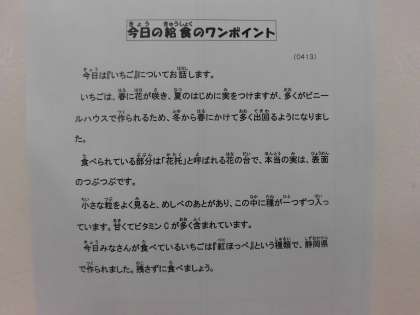 今日の給食のワンポイント
(0413)
今日は『いちご』についてお話します。
いちごは、春に花が咲き、夏のはじめに実をつけますが、多くがビニー
ルハウスで作られるため、冬から春にかけて多く出回るようになりまし
た。
食べられている部分は「花托」と呼ばれる花の台で、本当の実は、表面
のつぶつぶです。
小さな粒をよく見ると、めしべのあとがあり、この中に種が一つずつ入っ
ています。甘くてビタミンCが多く含まれています。
今日みなさんが食べているいちごは『紅ほっぺ』という種類で、静岡県
で作られました。残さずに食べましょう。